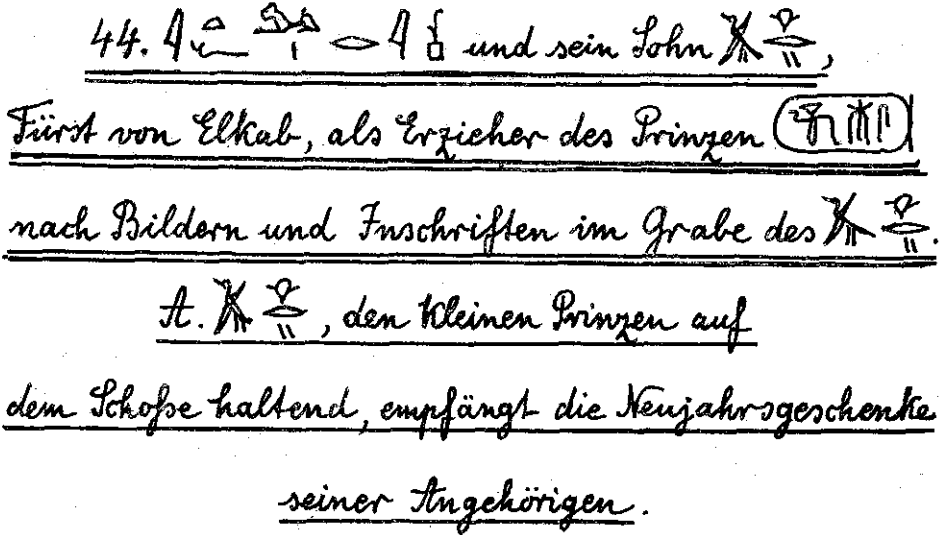 44. und sein Sohn 𓅮𓁷𓂋𓏭,
Fürst von Elkab, als Erzieher des Prinzen
nach Bildern und Inschriften im Grabe des 𓅮𓁷𓂋𓏭.
A. 𓅮𓁷𓂋𓏭, den kleinen Prinzen auf
dem Schoße haltend, empfängt die Neujahrsgeschenke
seiner Angehörigen.